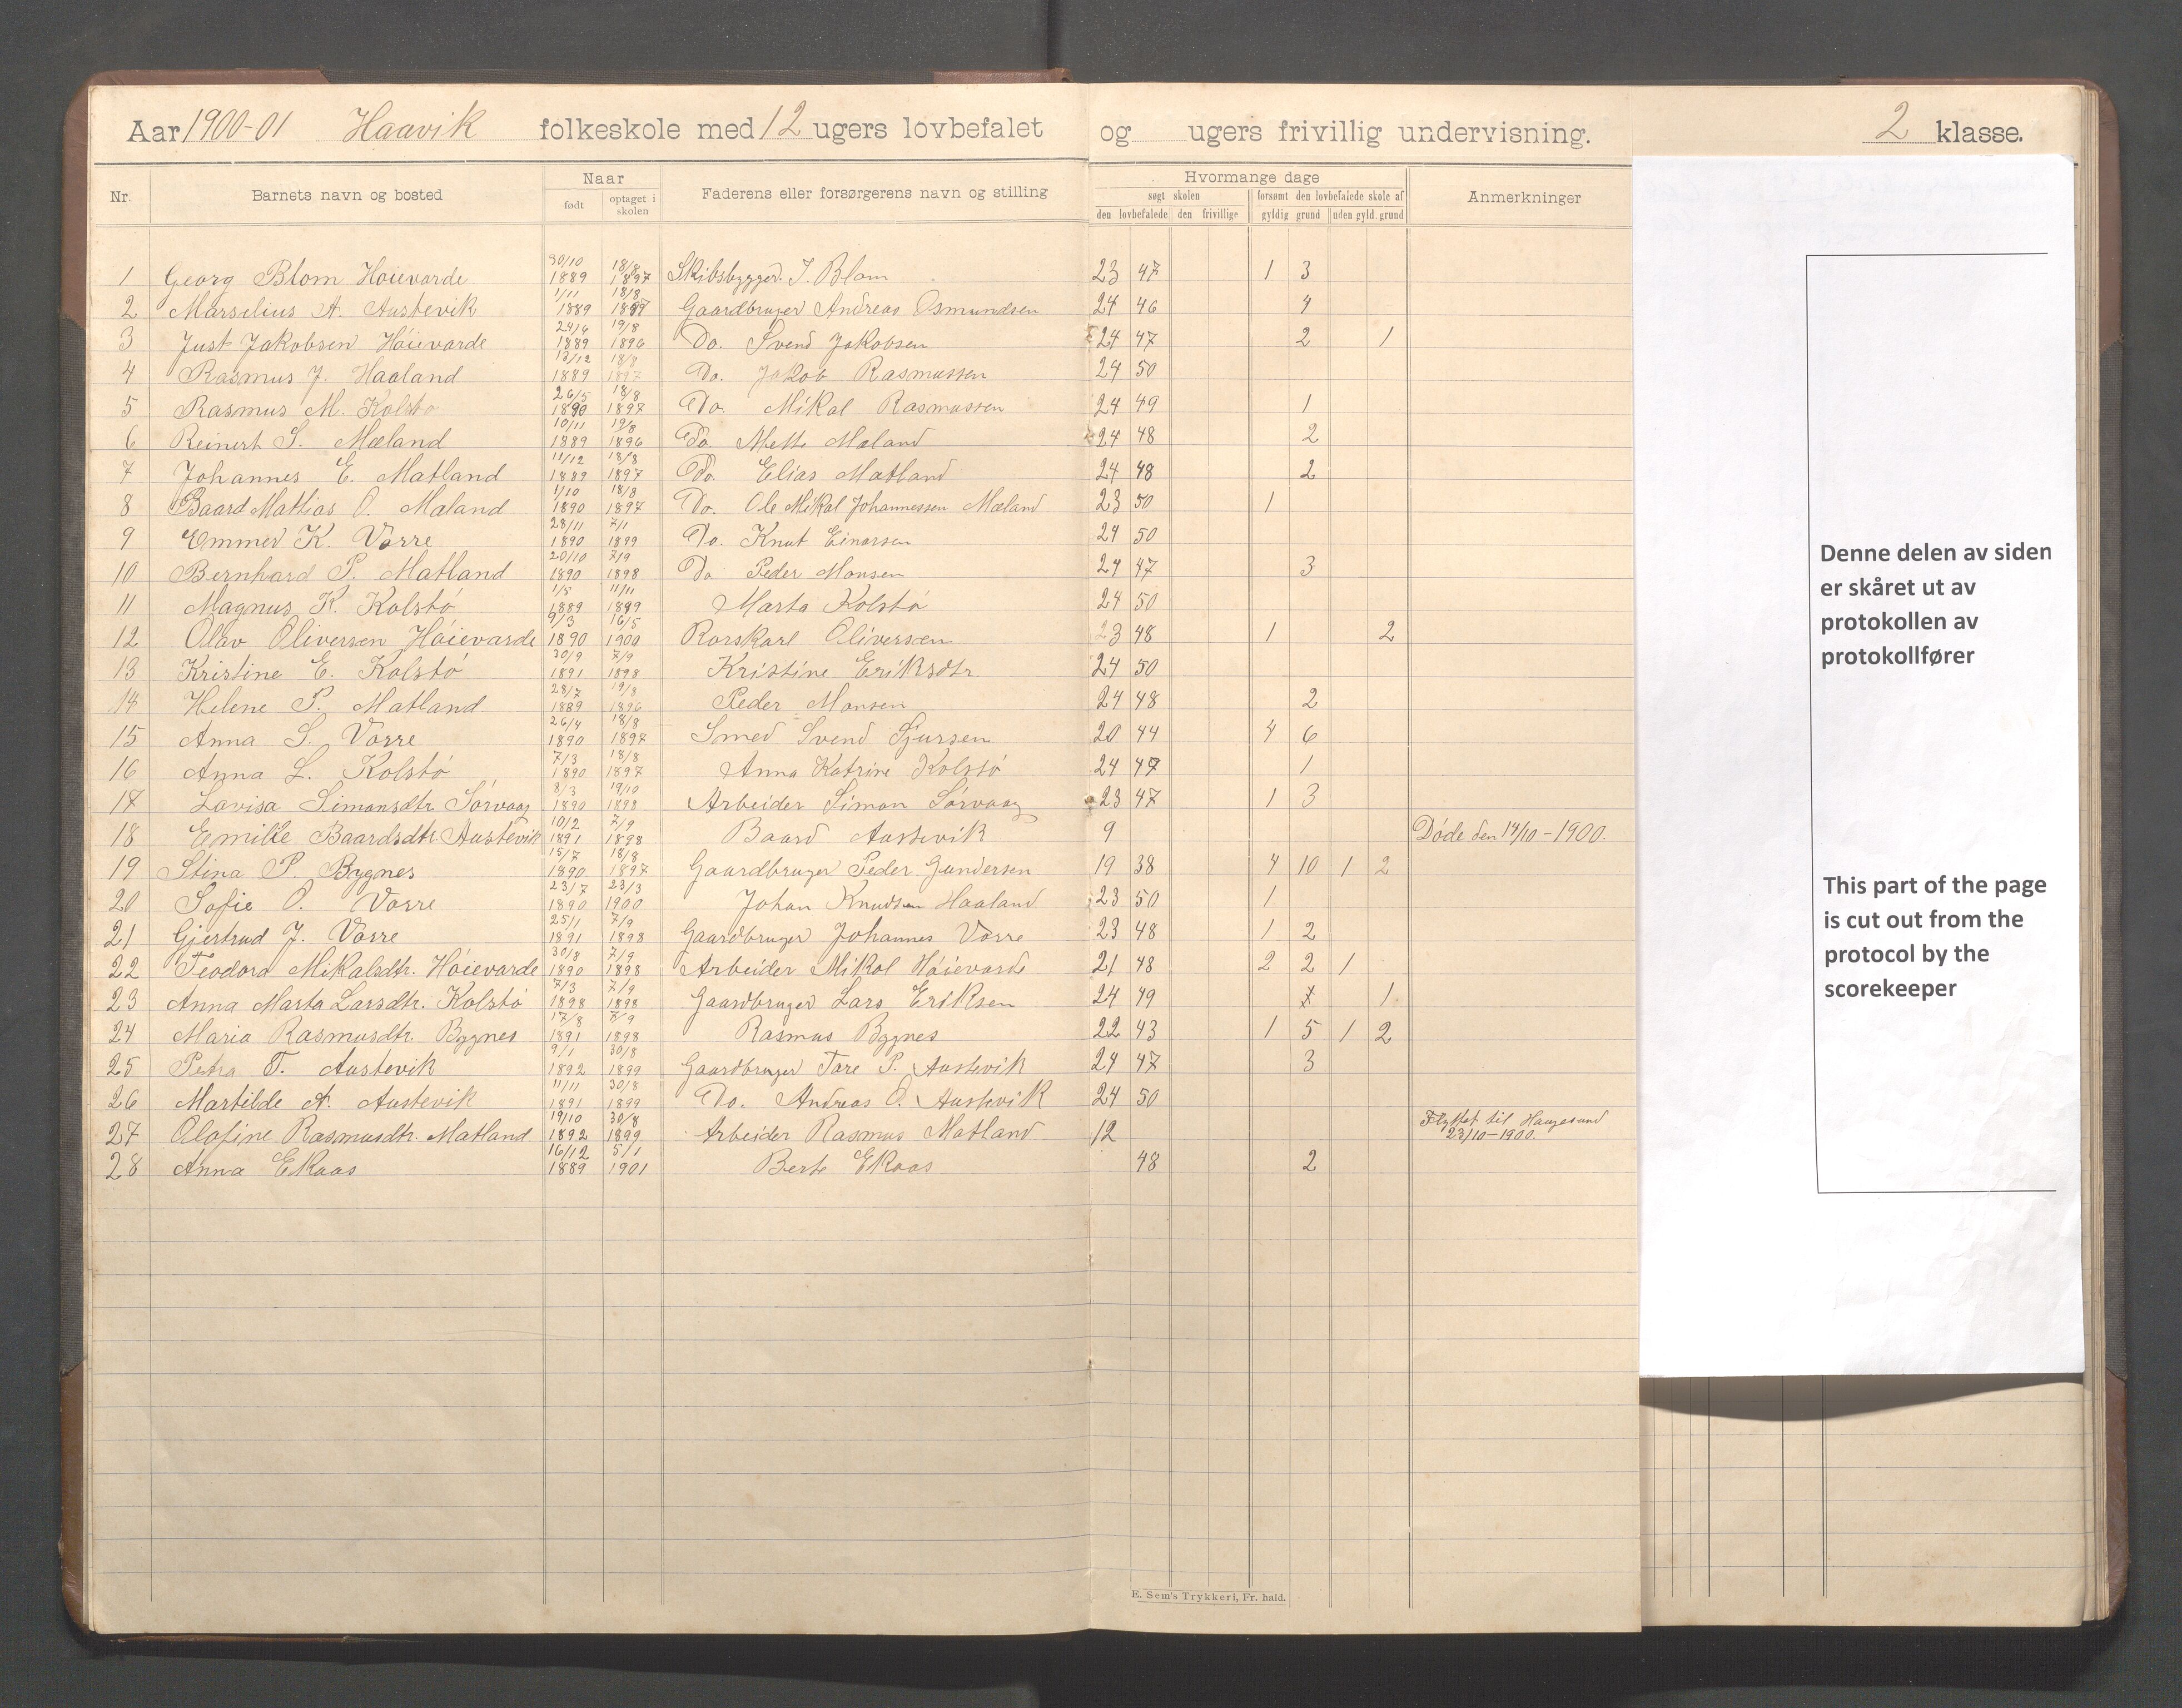 Aar 1900-01 Haavik folkeskole med 12 ugers lovbefalet og ugers frivillig undervisning. 2 klasse.
Nr. Barnets navn og bosted Naar født optaget i skolen Faderens eller forsørgerens navn og stilling Hvormange dage søgt skolen den lovbefalede den frivillige forsømt den lovbefalede skole af gyldig grund uden gyld. grund Anmerkninger
1 Georg Blom Høievarde 30/10 1889 18/8 1897 Skibsbygger J. Blom 23 47 1 3
2 Marselius A. Austevik 1/11 1889 18/8 1897 Gaardbruger Andreas Osmundsen 24 46 4
3 Just Jakobsen Høievarde 24/6 1889 19/8 1896 Do. Svend Jakobsen 24 47 2 1
4 Rasmus J. Haaland 13/12 1889 18/8 1897 Do. Jakob Rasmussen 24 50
5 Rasmus M. Kolstø 26/5 1890 18/8 1897 Do. Mikal Rasmussen 24 49 1
6 Reinert S. Mæland 10/11 1889 19/8 1896 Do. Mette Mæland 24 48 2
7 Johannes E. Matland 11/12 1889 18/8 1897 Do. Elias Matland 24 48 2
8 Baard Mattias O. Mæland 1/10 1890 18/8 1897 Do. Ole Mikal Johannessen Mæland 23 50 1
9 Emmed K. Vorre 28/11 1890 7/1 1899 Do. Knut Einarsen 24 50
10 Bernhard P. Matland 20/10 1890 7/9 1898 Do Peder Monsen 24 47 3
11 Magnus K. Kolstø 1/5 1889 11/11 1899 Marta Kolstø 24 50
12 Olav Oliversen Høievarde 9/3 1890 16/5 1900 Rorskarl Oliversen 23 48 1 2
13 Kristine E. Kolstø 30/9 1891 7/9 1898 Kristine Eriksdtr. 24 50
14 Helene P. Matland 28/7 1889 19/8 1896 Peder Monsen 24 48 2
15 Anna S. Vorre 26/4 1890 18/8 1897 Smed Svend Sjursen 20 44 4 6
16 Anna L. Kolstø 7/3 1890 18/8 1897 Anna Katrine Kolstø 24 47 1
17 Lovisa Simonsdtr. Sørvaag 8/3 1890 19/10 1898 Arbeider Simon Sørvaag 23 47 1 3
18 Emilie Baardsdtr. Austevik 10/2 1891 7/9 1898 Baard Austevik 9 Døde den 14/10-1900.
19 Stina P. Bygnes 15/7 1890 18/8 1897 Gaardbruger Peder Gundersen 19 38 4 10 1 2
20 Sofie O. Vorre 23/7 1890 23/3 1900 Johan Knudsen Haaland 23 50 1
21 Gjertrud J. Vorre 25/1 1891 7/9 1898 Gaardbruger Johannes Vorre 23 48 1 2
22 Teodora Mikalsdtr. Høievarde 30/8 1890 7/9 1898 Arbeider Mikal Høievarde 21 48 2 2 1
23 Anna Marta Larsdtr. Kolstø 7/3 1898 7/9 1898 Gaardbruger Lars Eriksen 24 49 1
24 Maria Rasmusdtr. Bygnes 17/8 1891 7/9 1898 Rasmus Bygnes 22 43 1 5 1 2
25 Petra T. Austevik 9/1 1892 30/8 1899 Gaardbruger Tore P. Austevik 24 47 3
26 Martilde A. Austevik 11/11 1891 30/8 1899 Do. Andreas O. Austevik 24 50
27 Olofine Rasmusdtr. Matland 19/10 1892 30/8 1899 Arbeider Rasmus Matland 12 Flyttet til Haugesund 23/10-1900.
28 Anna Ekaas 16/12 1889 5/1 1901 Berte Ekaas 48 2
E. Sem's Trykkeri, Fr. hald.
Denne delen av siden
er skåret ut av
protokollen av
protokollfører
This part of the page
is cut out from the
protocol by the
scorekeeper